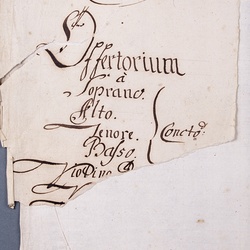 Offertorium
à
Soprano.
Alto.
Tenore. Conct:
Basso.
Violino